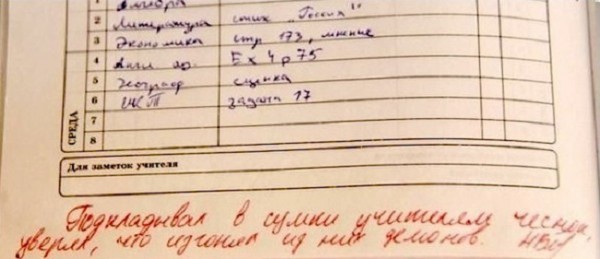 1 Алгебра
2 Литература стих „Россия"
3 Экономика стр 173, мнение
4 Англ. яз. Ex 4 p 75
5 Географ сценка
6 задача 17
7
8
СРЕДА
Для заметок учителя
Подкладывал в сумки учителям чеснок,
уверял, что изгоняет из них демонов.